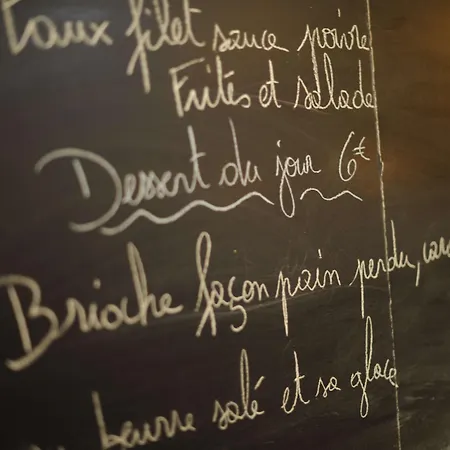 Faux filet sauce poivre
Frites et salade
Dessert du jour 6€
Brioche façon pain perdu, car
au beurre salé et sa glace